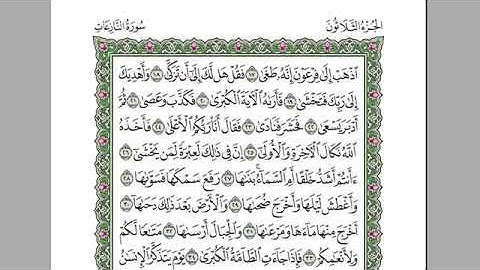 الجزء الثلاثون
سورة النازعات
ٱذْهَبْ إِلَىٰ فِرْعَوْنَ إِنَّهُۥ طَغَىٰ ١٧ فَقُلْ هَل لَّكَ إِلَىٰٓ أَن تَزَكَّىٰ ١٨ وَأَهْدِيَكَ
إِلَىٰ رَبِّكَ فَتَخْشَىٰ ١٩ فَأَرَىٰهُ ٱلْءَايَةَ ٱلْكُبْرَىٰ ٢٠ فَكَذَّبَ وَعَصَىٰ ٢١ ثُمَّ
أَدْبَرَ يَسْعَىٰ ٢٢ فَحَشَرَ فَنَادَىٰ ٢٣ فَقَالَ أَنَا۠ رَبُّكُمُ ٱلْأَعْلَىٰ ٢٤ فَأَخَذَهُ
ٱللَّهُ نَكَالَ ٱلْءَاخِرَةِ وَٱلْأُولَىٰٓ ٢٥ إِنَّ فِى ذَٰلِكَ لَعِبْرَةً لِّمَن يَخْشَىٰٓ ٢٦
ءَأَنتُمْ أَشَدُّ خَلْقًا أَمِ ٱلسَّمَآءُ ۚ بَنَىٰهَا ٢٧ رَفَعَ سَمْكَهَا فَسَوَّىٰهَا ٢٨
وَأَغْطَشَ لَيْلَهَا وَأَخْرَجَ ضُحَىٰهَا ٢٩ وَٱلْأَرْضَ بَعْدَ ذَٰلِكَ دَحَىٰهَآ ٣٠
أَخْرَجَ مِنْهَا مَآءَهَا وَمَرْعَىٰهَا ٣١ وَٱلْجِبَالَ أَرْسَىٰهَا ٣٢ مَتَٰعًا لَّكُمْ
وَلِأَنْعَٰمِكُمْ ٣٣ فَإِذَا جَآءَتِ ٱلطَّآمَّةُ ٱلْكُبْرَىٰ ٣٤ يَوْمَ يَتَذَكَّرُ ٱلْإِنسَٰنُ